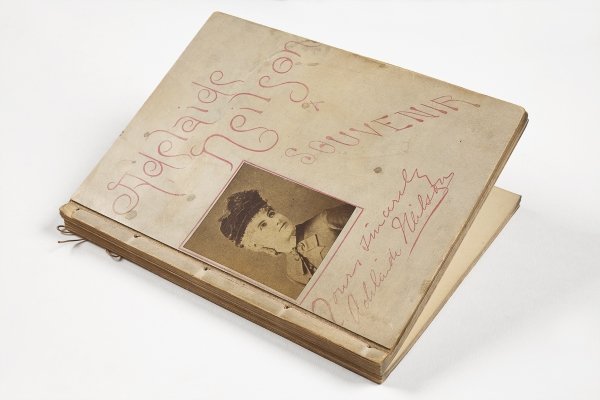 Adelaide
Neilson
A
SOUVENIR
Yours sincerely
Adelaide Neilson